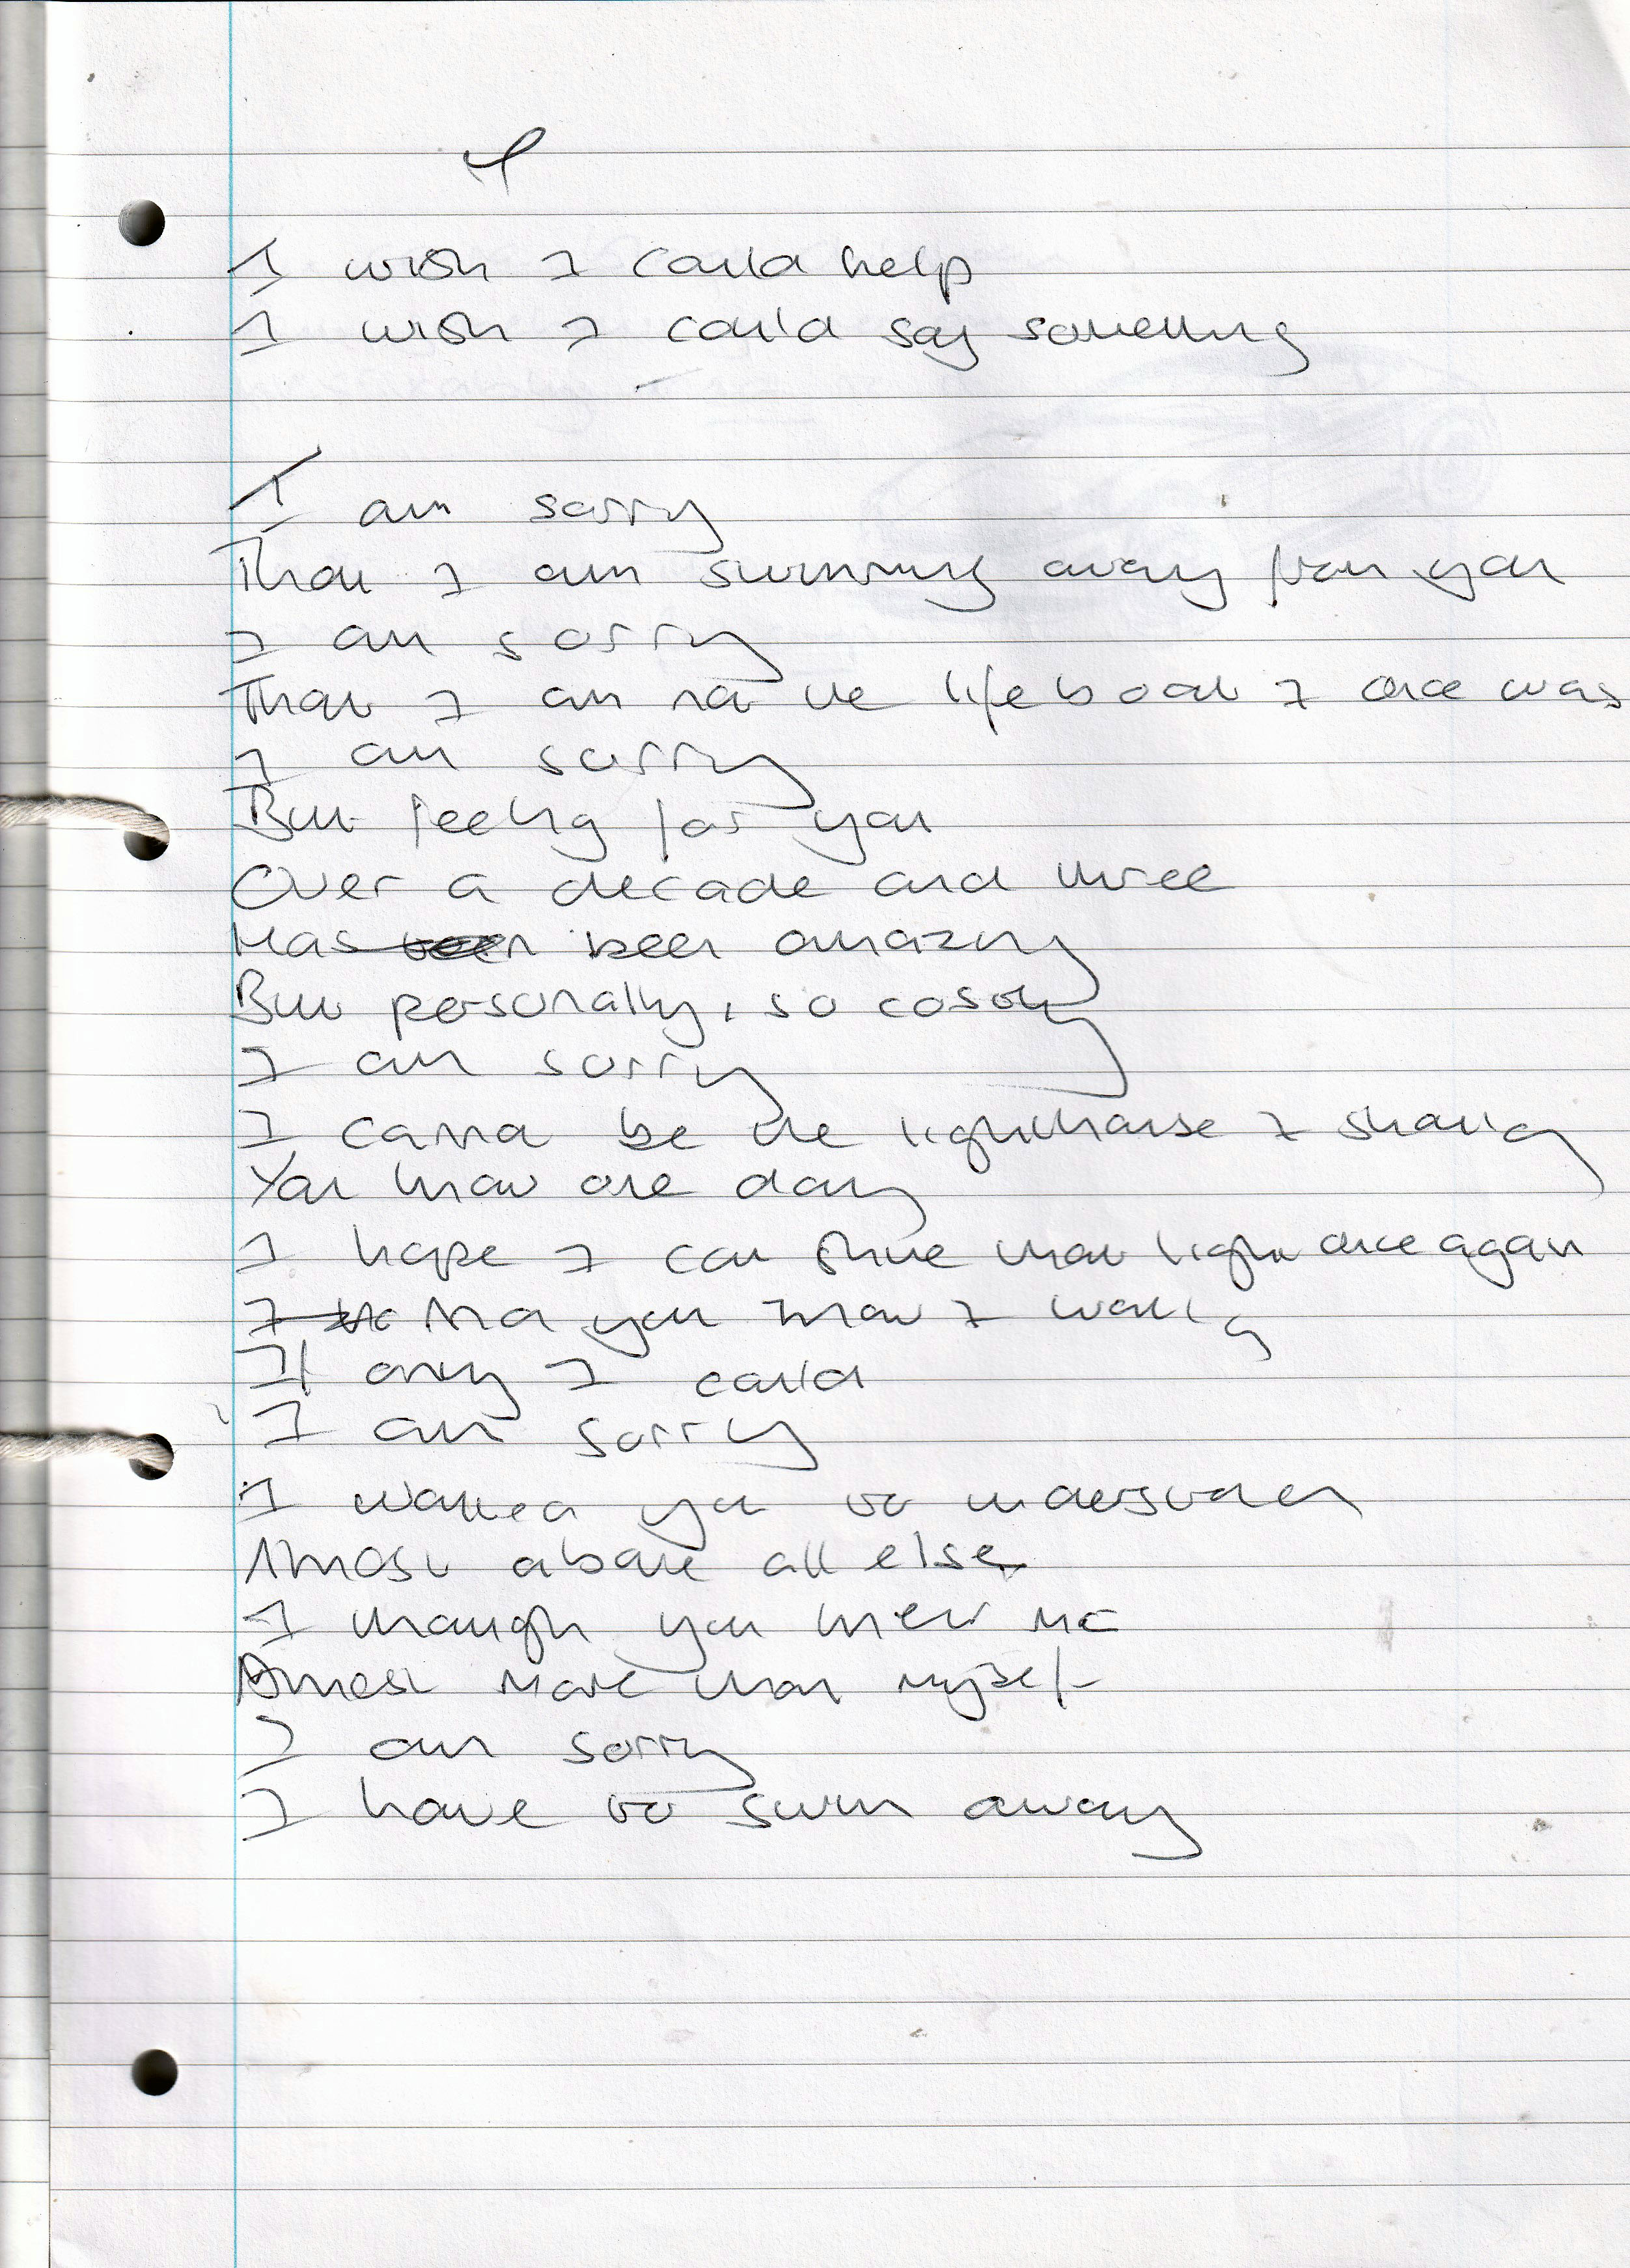 I wish I could help
I wish I could say something
I am sorry
That I am swimming away from you
I am sorry
That I am not the lifeboat I once was
I am sorry
But feeling for you
Over a decade and three
Has been been amazing
But personally, so costly
I am sorry
I cannot be the lighthouse I
You know one day
I hope I can shine that light once again
I not you know I would
If only I could
I am sorry
I wanted you to understand
Almost above all else
I thought you knew me
Almost more than myself
I am sorry
I have to swim away